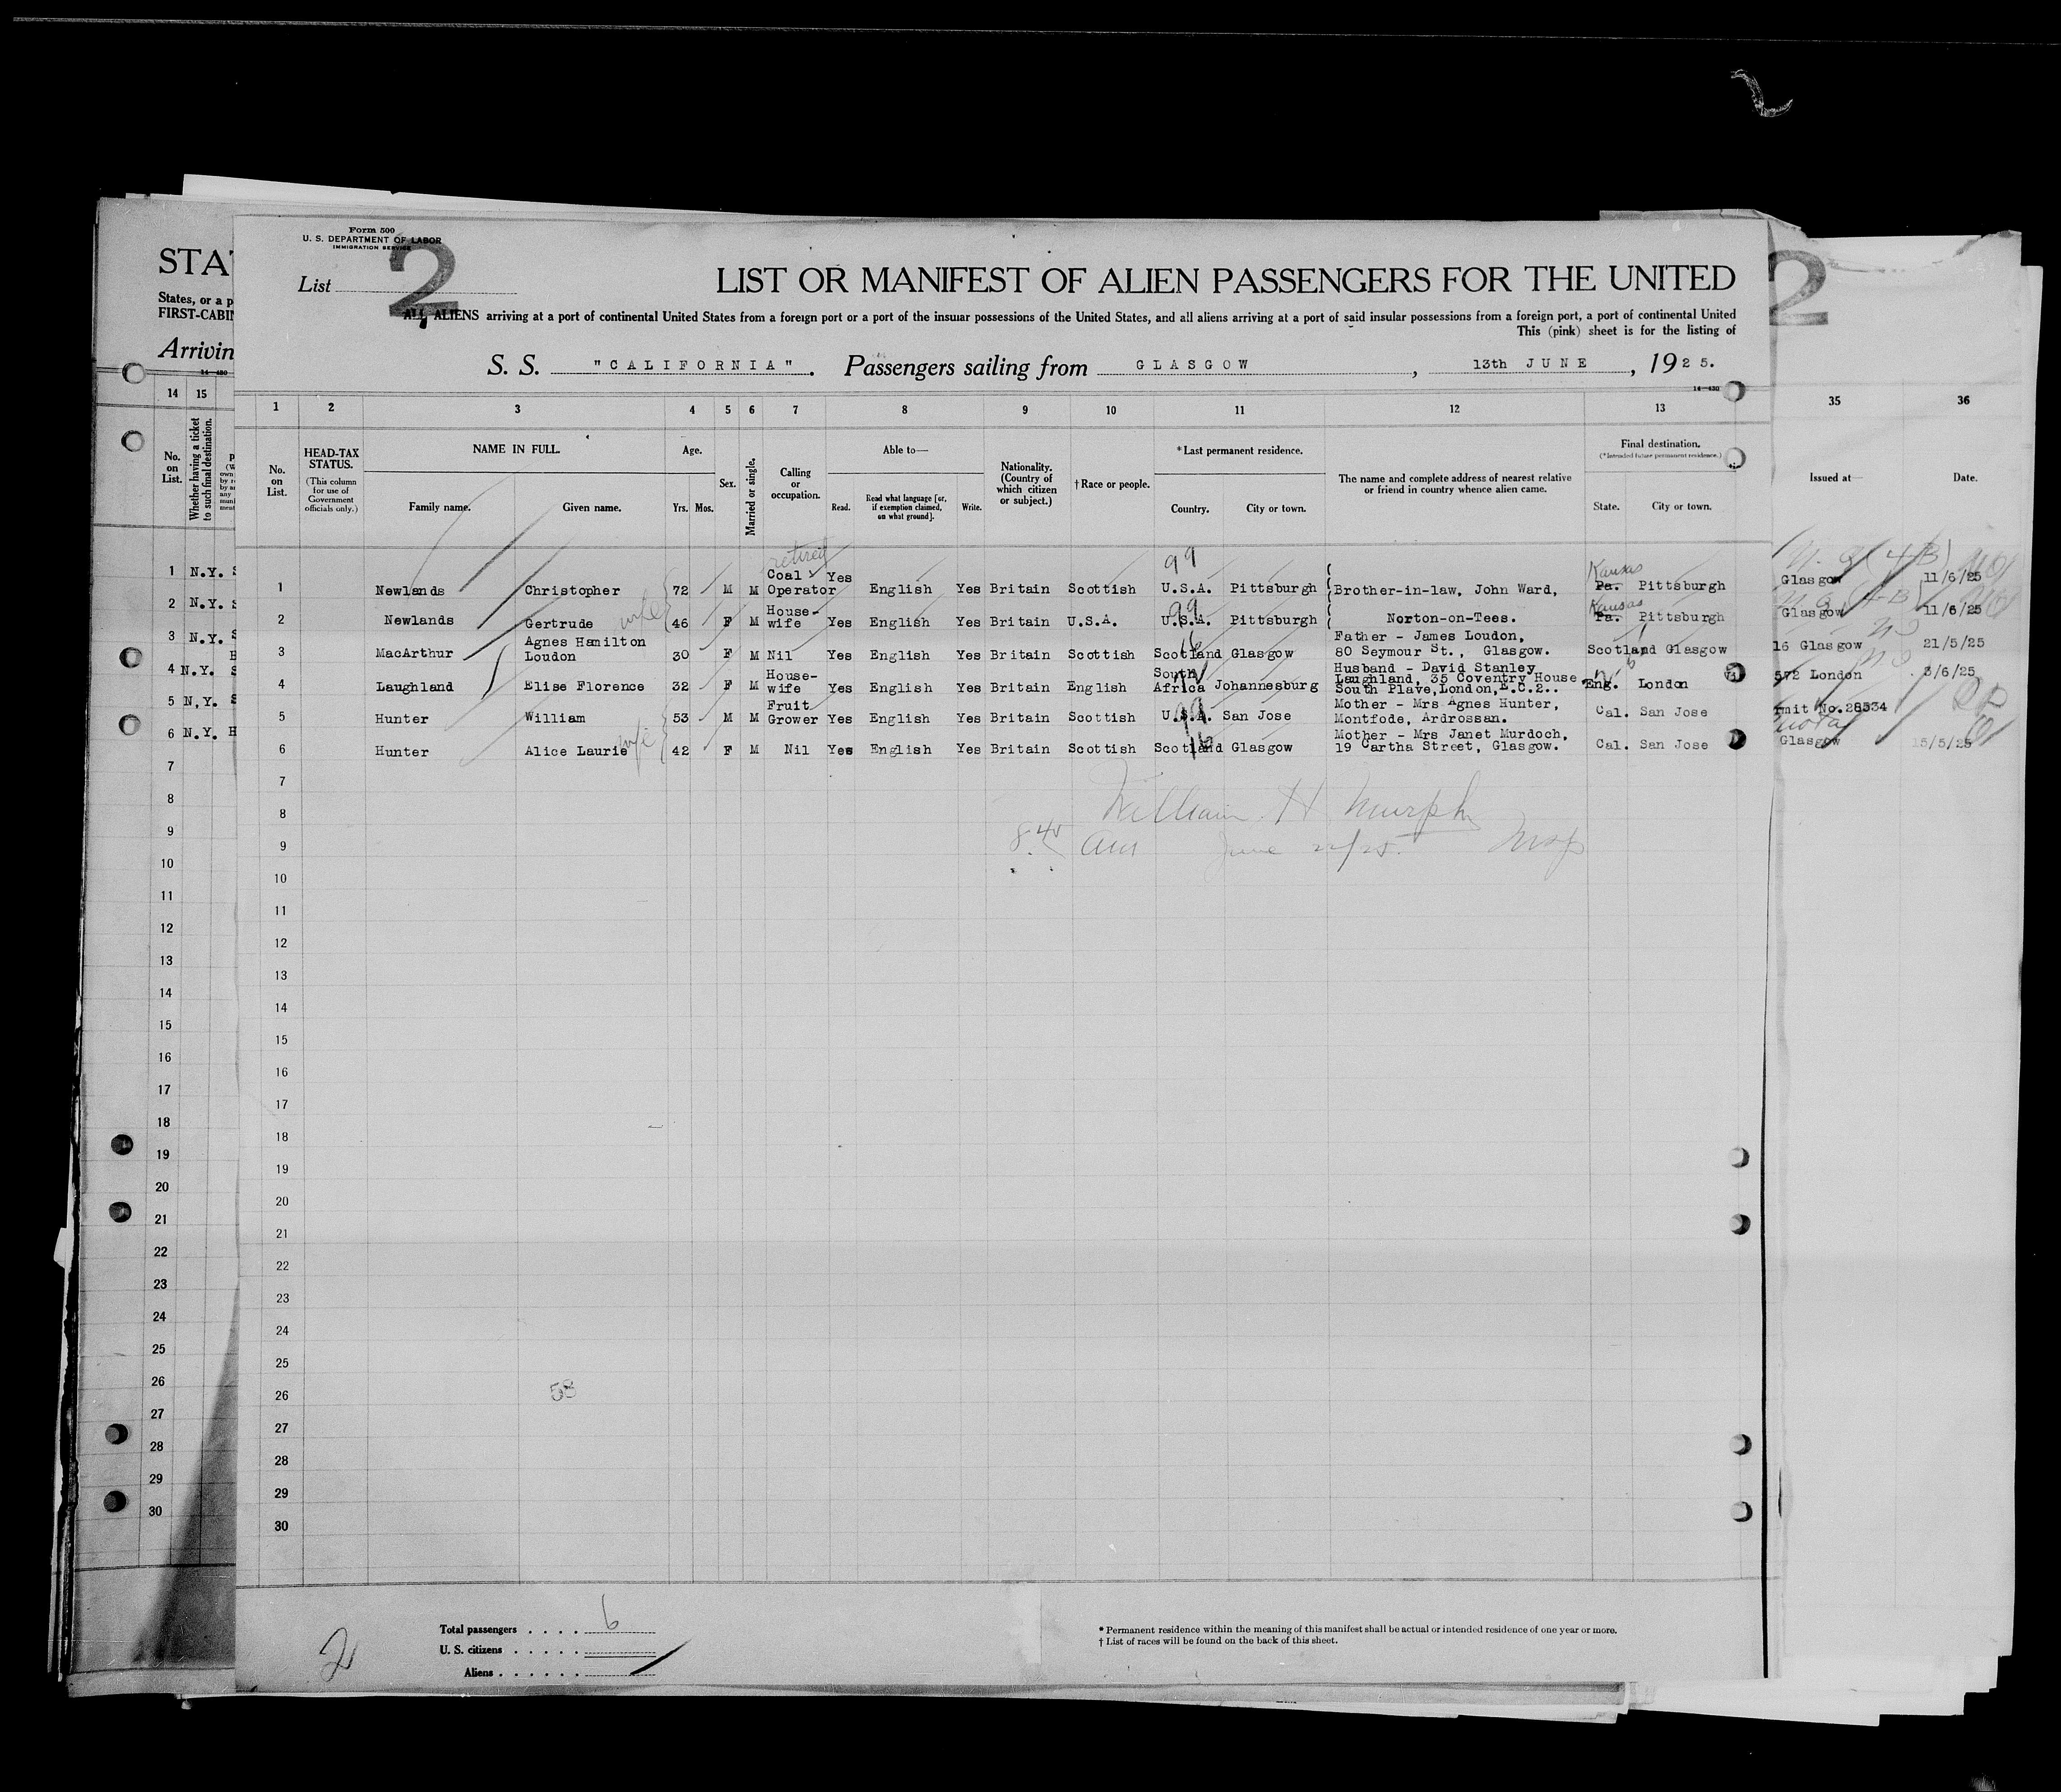 Form 500
U. S. DEPARTMENT OF LABOR
IMMIGRATION SERVICE
List 2
LIST OR MANIFEST OF ALIEN PASSENGERS FOR THE UNITED
ALL ALIENS arriving at a port of continental United States from a foreign port or a port of the insular possessions of the United States, and all aliens arriving at a port of said insular possessions from a foreign port, a port of continental United
This (pink) sheet is for the listing of
S. S. "CALIFORNIA". Passengers sailing from GLASGOW, 13th JUNE, 1925.
14—430
STAT
States, or a p
FIRST-CABIN
Arrivin
14—430
14 15
1 2 3 4 5 6 7 8 9 10 11 12 13
35 36
No. on List.
Whether having a ticket to such final destination.
No. on List.
HEAD-TAX STATUS.
(This column for use of Government officials only.)
NAME IN FULL.
Family name. Given name.
Age.
Yrs. Mos.
Sex.
Married or single.
Calling or occupation.
Able to—
Read. Read what language [or, if exemption claimed, on what ground]. Write.
Nationality. (Country of which citizen or subject.)
† Race or people.
* Last permanent residence.
Country. City or town.
The name and complete address of nearest relative or friend in country whence alien came.
Final destination.
(*Intended future permanent residence.)
State. City or town.
Issued at— Date.
1 N.Y.
2 N.Y.
3 N.Y.
4 N.Y.
5 N.Y.
6 N.Y.
1 Newlands Christopher 72 M M retired Coal Operator Yes English Yes Britain Scottish 99 U.S.A. Pittsburgh Brother-in-law, John Ward, Kansas Pa. Pittsburgh Glasgow 11/6/25
2 Newlands Gertrude wife 46 F M House-wife Yes English Yes Britain U.S.A. 99 U.S.A. Pittsburgh Norton-on-Tees. Kansas Pa. Pittsburgh Glasgow 11/6/25
3 MacArthur Agnes Hamilton Loudon 30 F M Nil Yes English Yes Britain Scottish Scotland Glasgow Father - James Loudon, 80 Seymour St., Glasgow. Scotland Glasgow 16 Glasgow 21/5/25
4 Laughland Elise Florence 32 F M House-wife Yes English Yes Britain English South Africa Johannesburg Husband - David Stanley Laughland, 35 Coventry House, South Plave, London, E.C.2.. Eng. London 572 London 3/6/25
5 Hunter William 53 M M Fruit Grower Yes English Yes Britain Scottish 99 U.S.A. San Jose Mother - Mrs Agnes Hunter, Montfode, Ardrossan. Cal. San Jose rmit No.28534
6 Hunter Alice Laurie wife 42 F M Nil Yes English Yes Britain Scottish Scotland Glasgow Mother - Mrs Janet Murdoch, 19 Cartha Street, Glasgow. Cal. San Jose Glasgow 15/5/25
7
8
9
10
11
12
13
14
15
16
17
18
19
20
21
22
23
24
25
26
27
28
29
30
7
8
William H Murphy
9
8.45 am June 22/25. Insp
10
11
12
13
14
15
16
17
18
19
20
21
22
23
24
25
26
58
27
28
29
30
2
Total passengers . . . . 6
U. S. citizens . . . . .
Aliens . . . . . .
* Permanent residence within the meaning of this manifest shall be actual or intended residence of one year or more.
† List of races will be found on the back of this sheet.
2